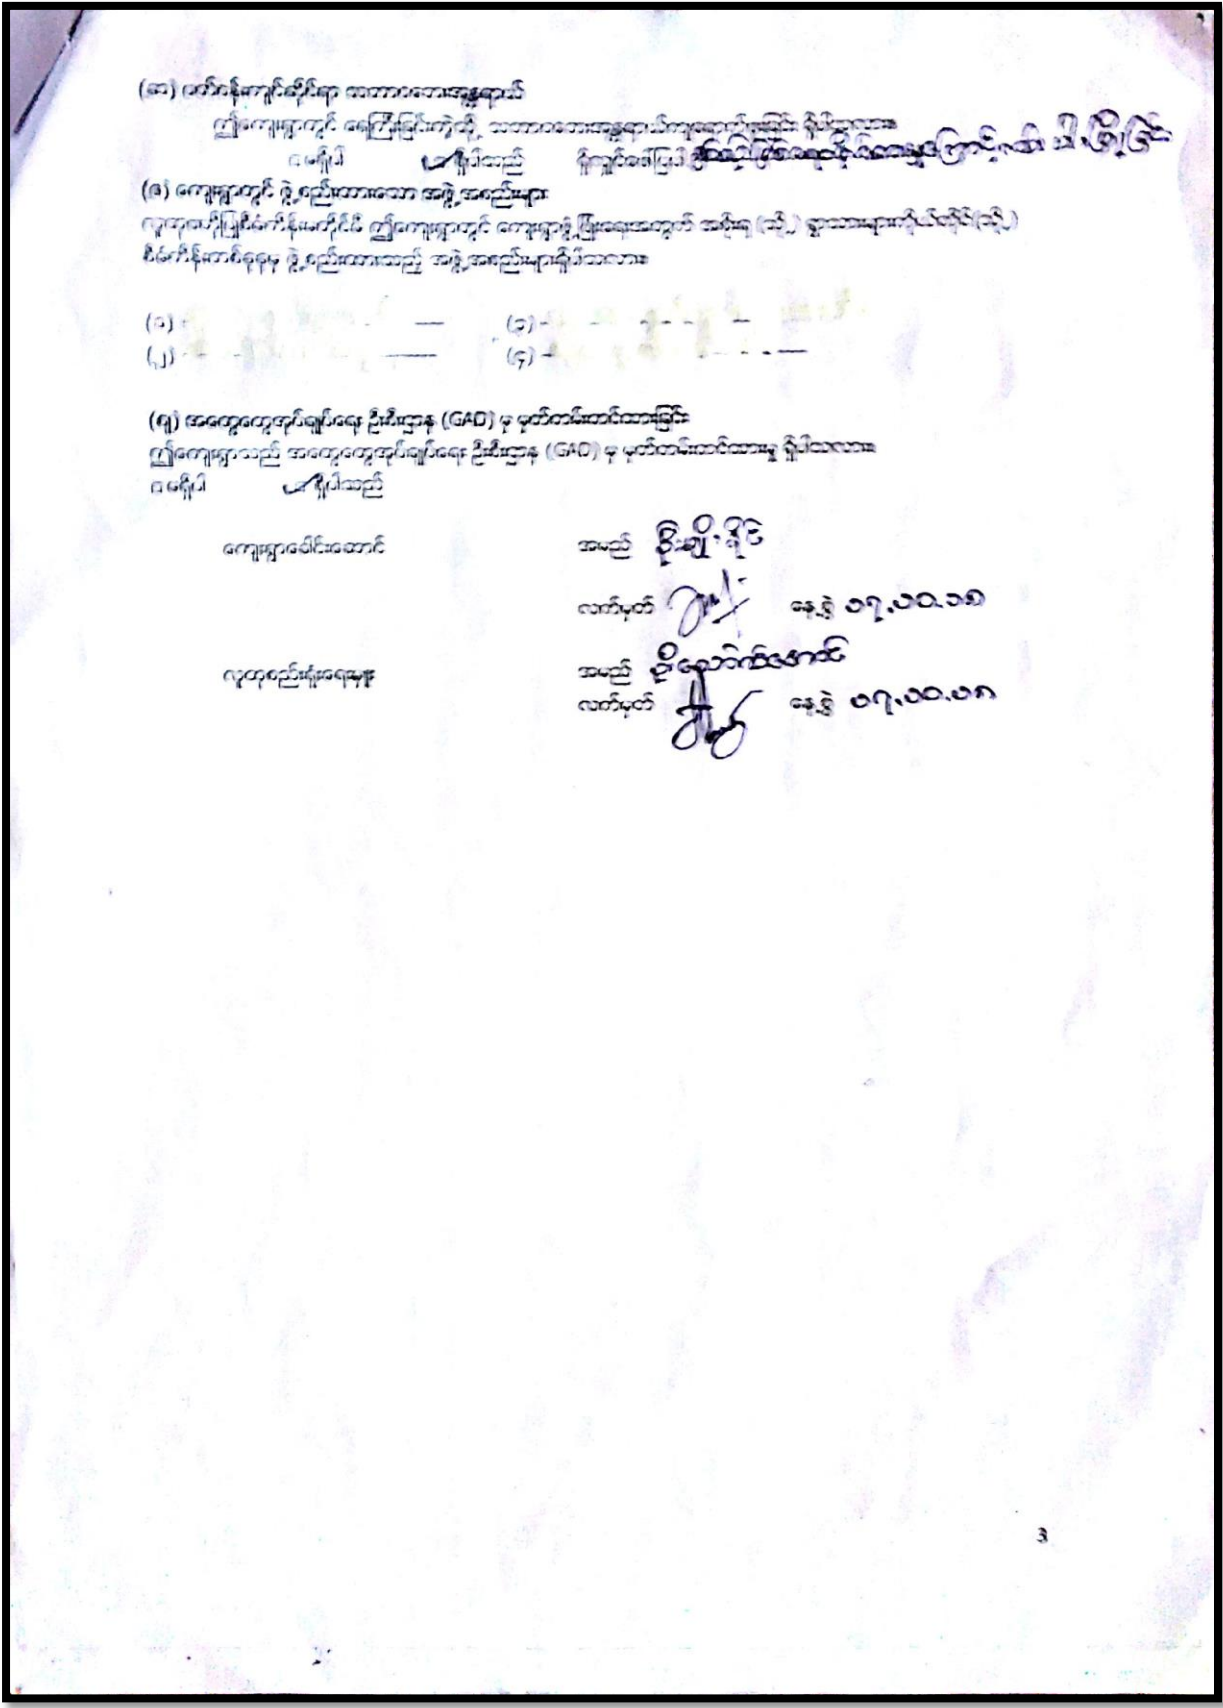 (ဆ) ပတ်ဝန်းကျင်ဆိုင်ရာ သဘာဝဘေးအန္တရာယ်
ဤကျေးရွာတွင် ရေကြီးခြင်းကဲ့သို့ သဘာဝဘေးအန္တရာယ်ကျရောက်ဖူးခြင်း ရှိပါသလား။
□ မရှိပါ □ ရှိပါသည် ရှိလျှင်ဖေါ်ပြပါ
(ဇ) ကျေးရွာတွင် ဖွဲ့စည်းထားသော အဖွဲ့အစည်းများ
လူထုဗဟိုပြုစီမံကိန်းမတိုင်မီ ဤကျေးရွာတွင် ကျေးရွာဖွံ့ဖြိုးရေးအတွက် အစိုးရ (သို့) ရွာသားများကိုယ်တိုင်(သို့)
စီမံကိန်းတစ်ခုခုမှ ဖွဲ့စည်းထားသည့် အဖွဲ့အစည်းများရှိပါသလား။
(၁) - (၃) -
(၂) - (၄) -
(ဈ) အထွေထွေအုပ်ချုပ်ရေး ဦးစီးဌာန (GAD) မှ မှတ်တမ်းတင်ထားခြင်း
ဤကျေးရွာသည် အထွေထွေအုပ်ချုပ်ရေး ဦးစီးဌာန (GAD) မှ မှတ်တမ်းတင်ထားမှု ရှိပါသလား။
□ မရှိပါ □ ရှိပါသည်
ကျေးရွာခေါင်းဆောင် အမည် ဦးချို
လက်မှတ် နေ့စွဲ ၁၇.၁၀.၁၈
လူထုစည်းရုံးရေးမှူး အမည် ဦးသောက်အောင်
လက်မှတ် နေ့စွဲ ၁၇.၁၀.၁၈
3